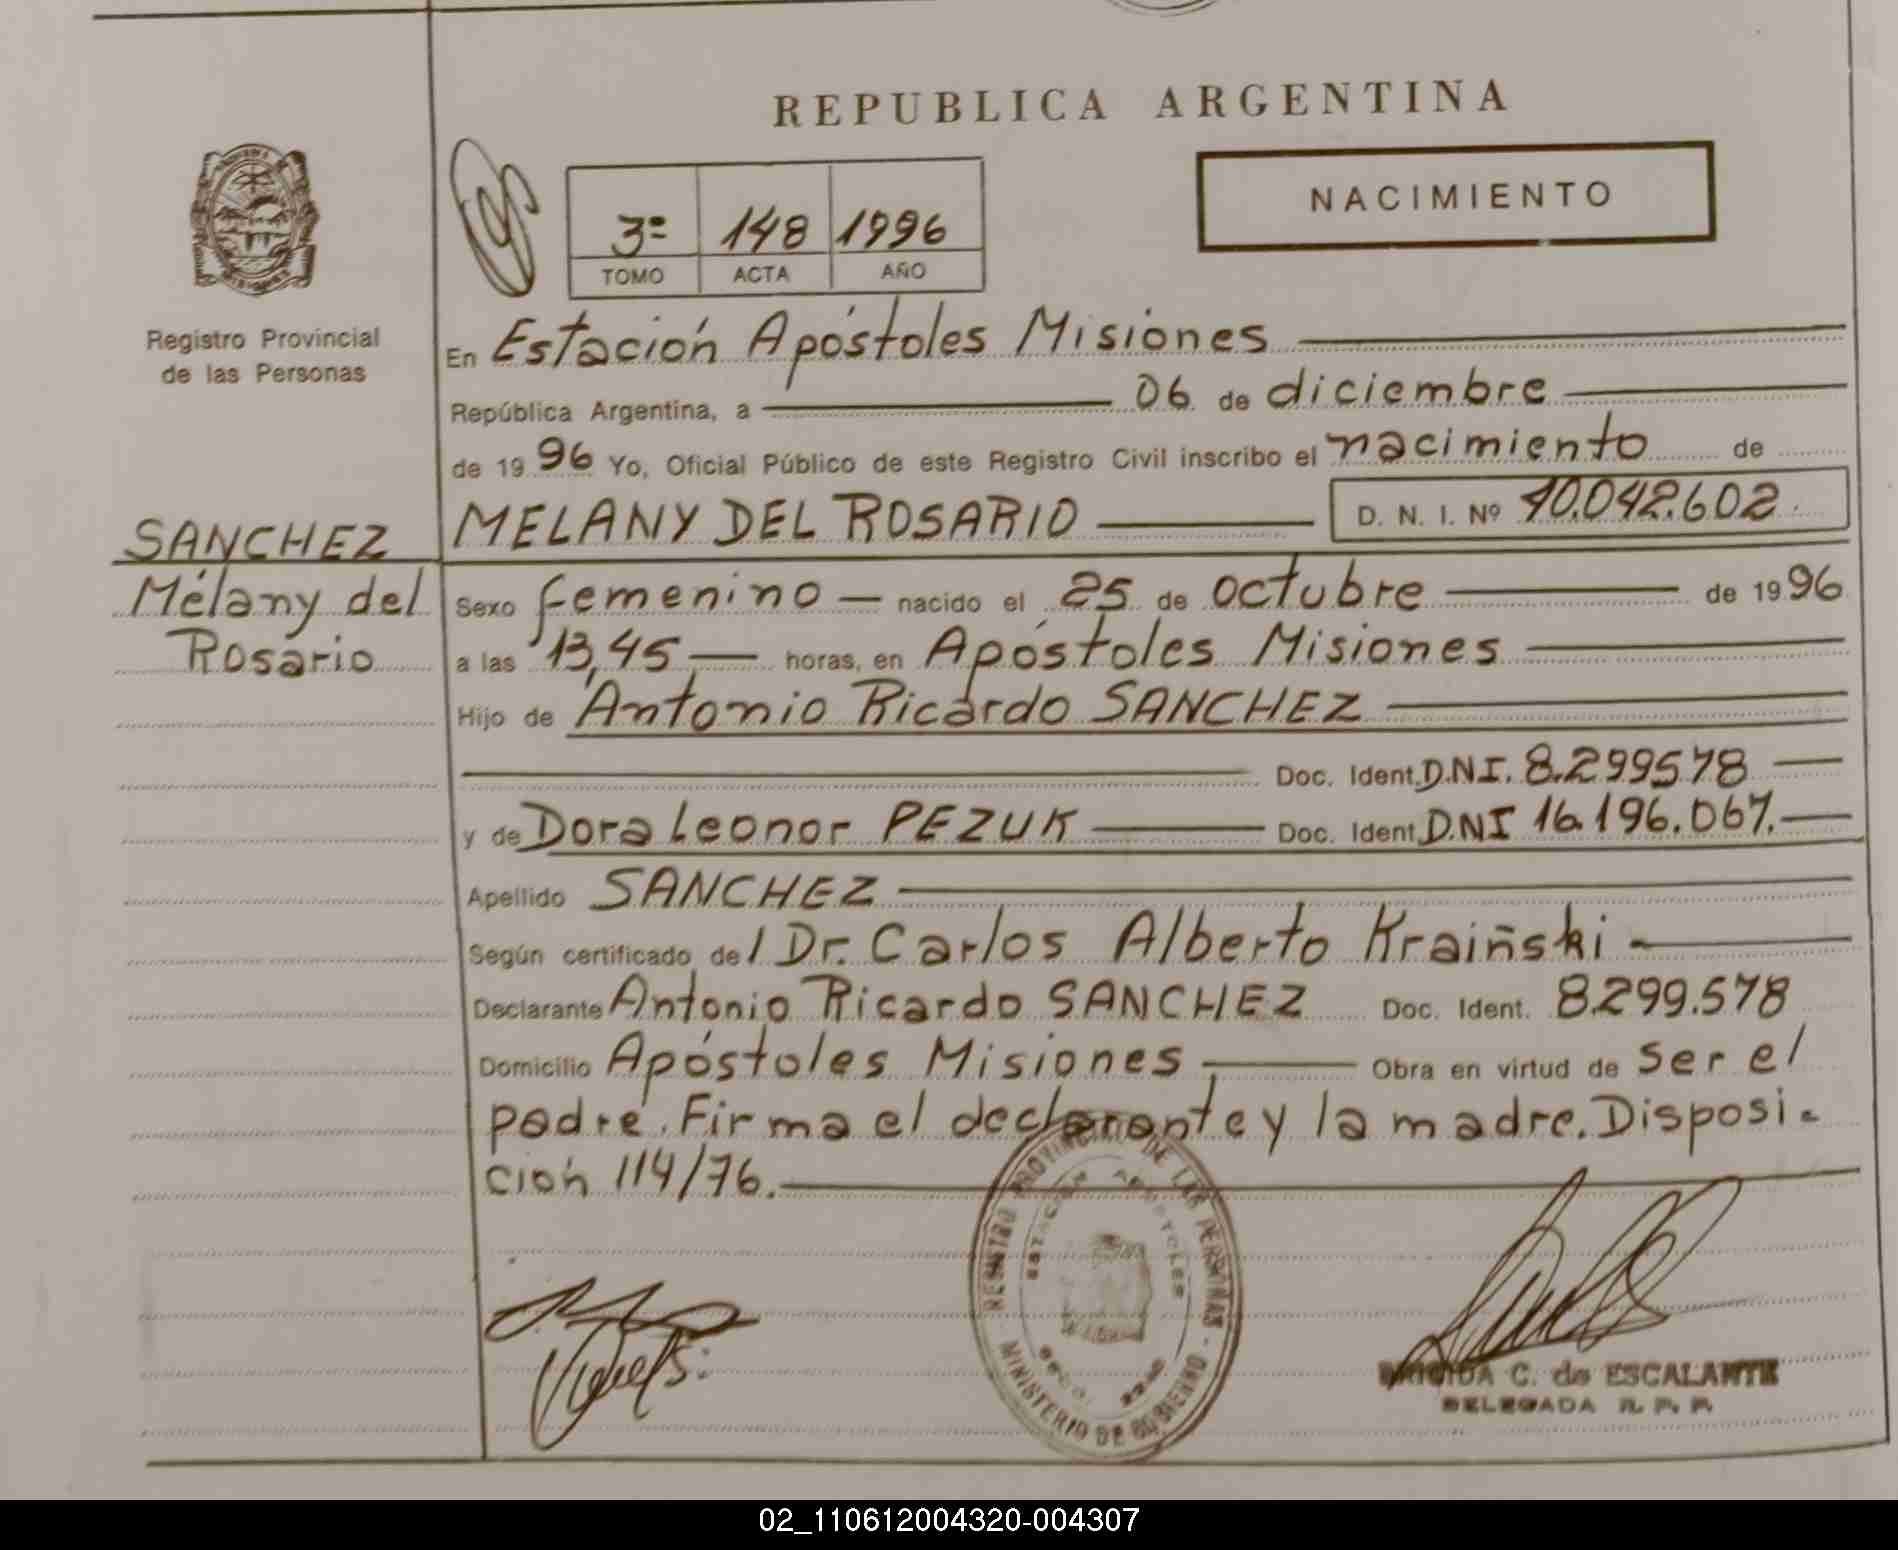 REPUBLICA ARGENTINA
NACIMIENTO
3º 148 1996
TOMO ACTA AÑO
Registro Provincial
de las Personas
En Estación Apóstoles Misiones
República Argentina, a 06 de diciembre
de 1996 Yo, Oficial Público de este Registro Civil inscribo el nacimiento de
SANCHEZ
Mélany del
Rosario
MELANY DEL ROSARIO D. N. I. Nº 40.042.602.
Sexo femenino nacido el 25 de octubre de 1996
a las 13,45 horas, en Apóstoles Misiones
Hijo de Antonio Ricardo SANCHEZ
Doc. Ident. D.N.I. 8.299578
y de Dora Leonor PEZUK Doc. Ident. D.NI 16.196.067.
Apellido SANCHEZ
Según certificado del Dr. Carlos Alberto Kraiñski
Declarante Antonio Ricardo SANCHEZ Doc. Ident. 8.299.578
Domicilio Apóstoles Misiones Obra en virtud de ser el
padre. Firma el declarante y la madre. Disposi-
ción 114/76.
REGISTRO PROVINCIAL DE LAS PERSONAS
ESTACION APOSTOLES
MINISTERIO DE GOBIERNO
BRIGIDA C. de ESCALANTE
DELEGADA R. P. P.
02_110612004320-004307